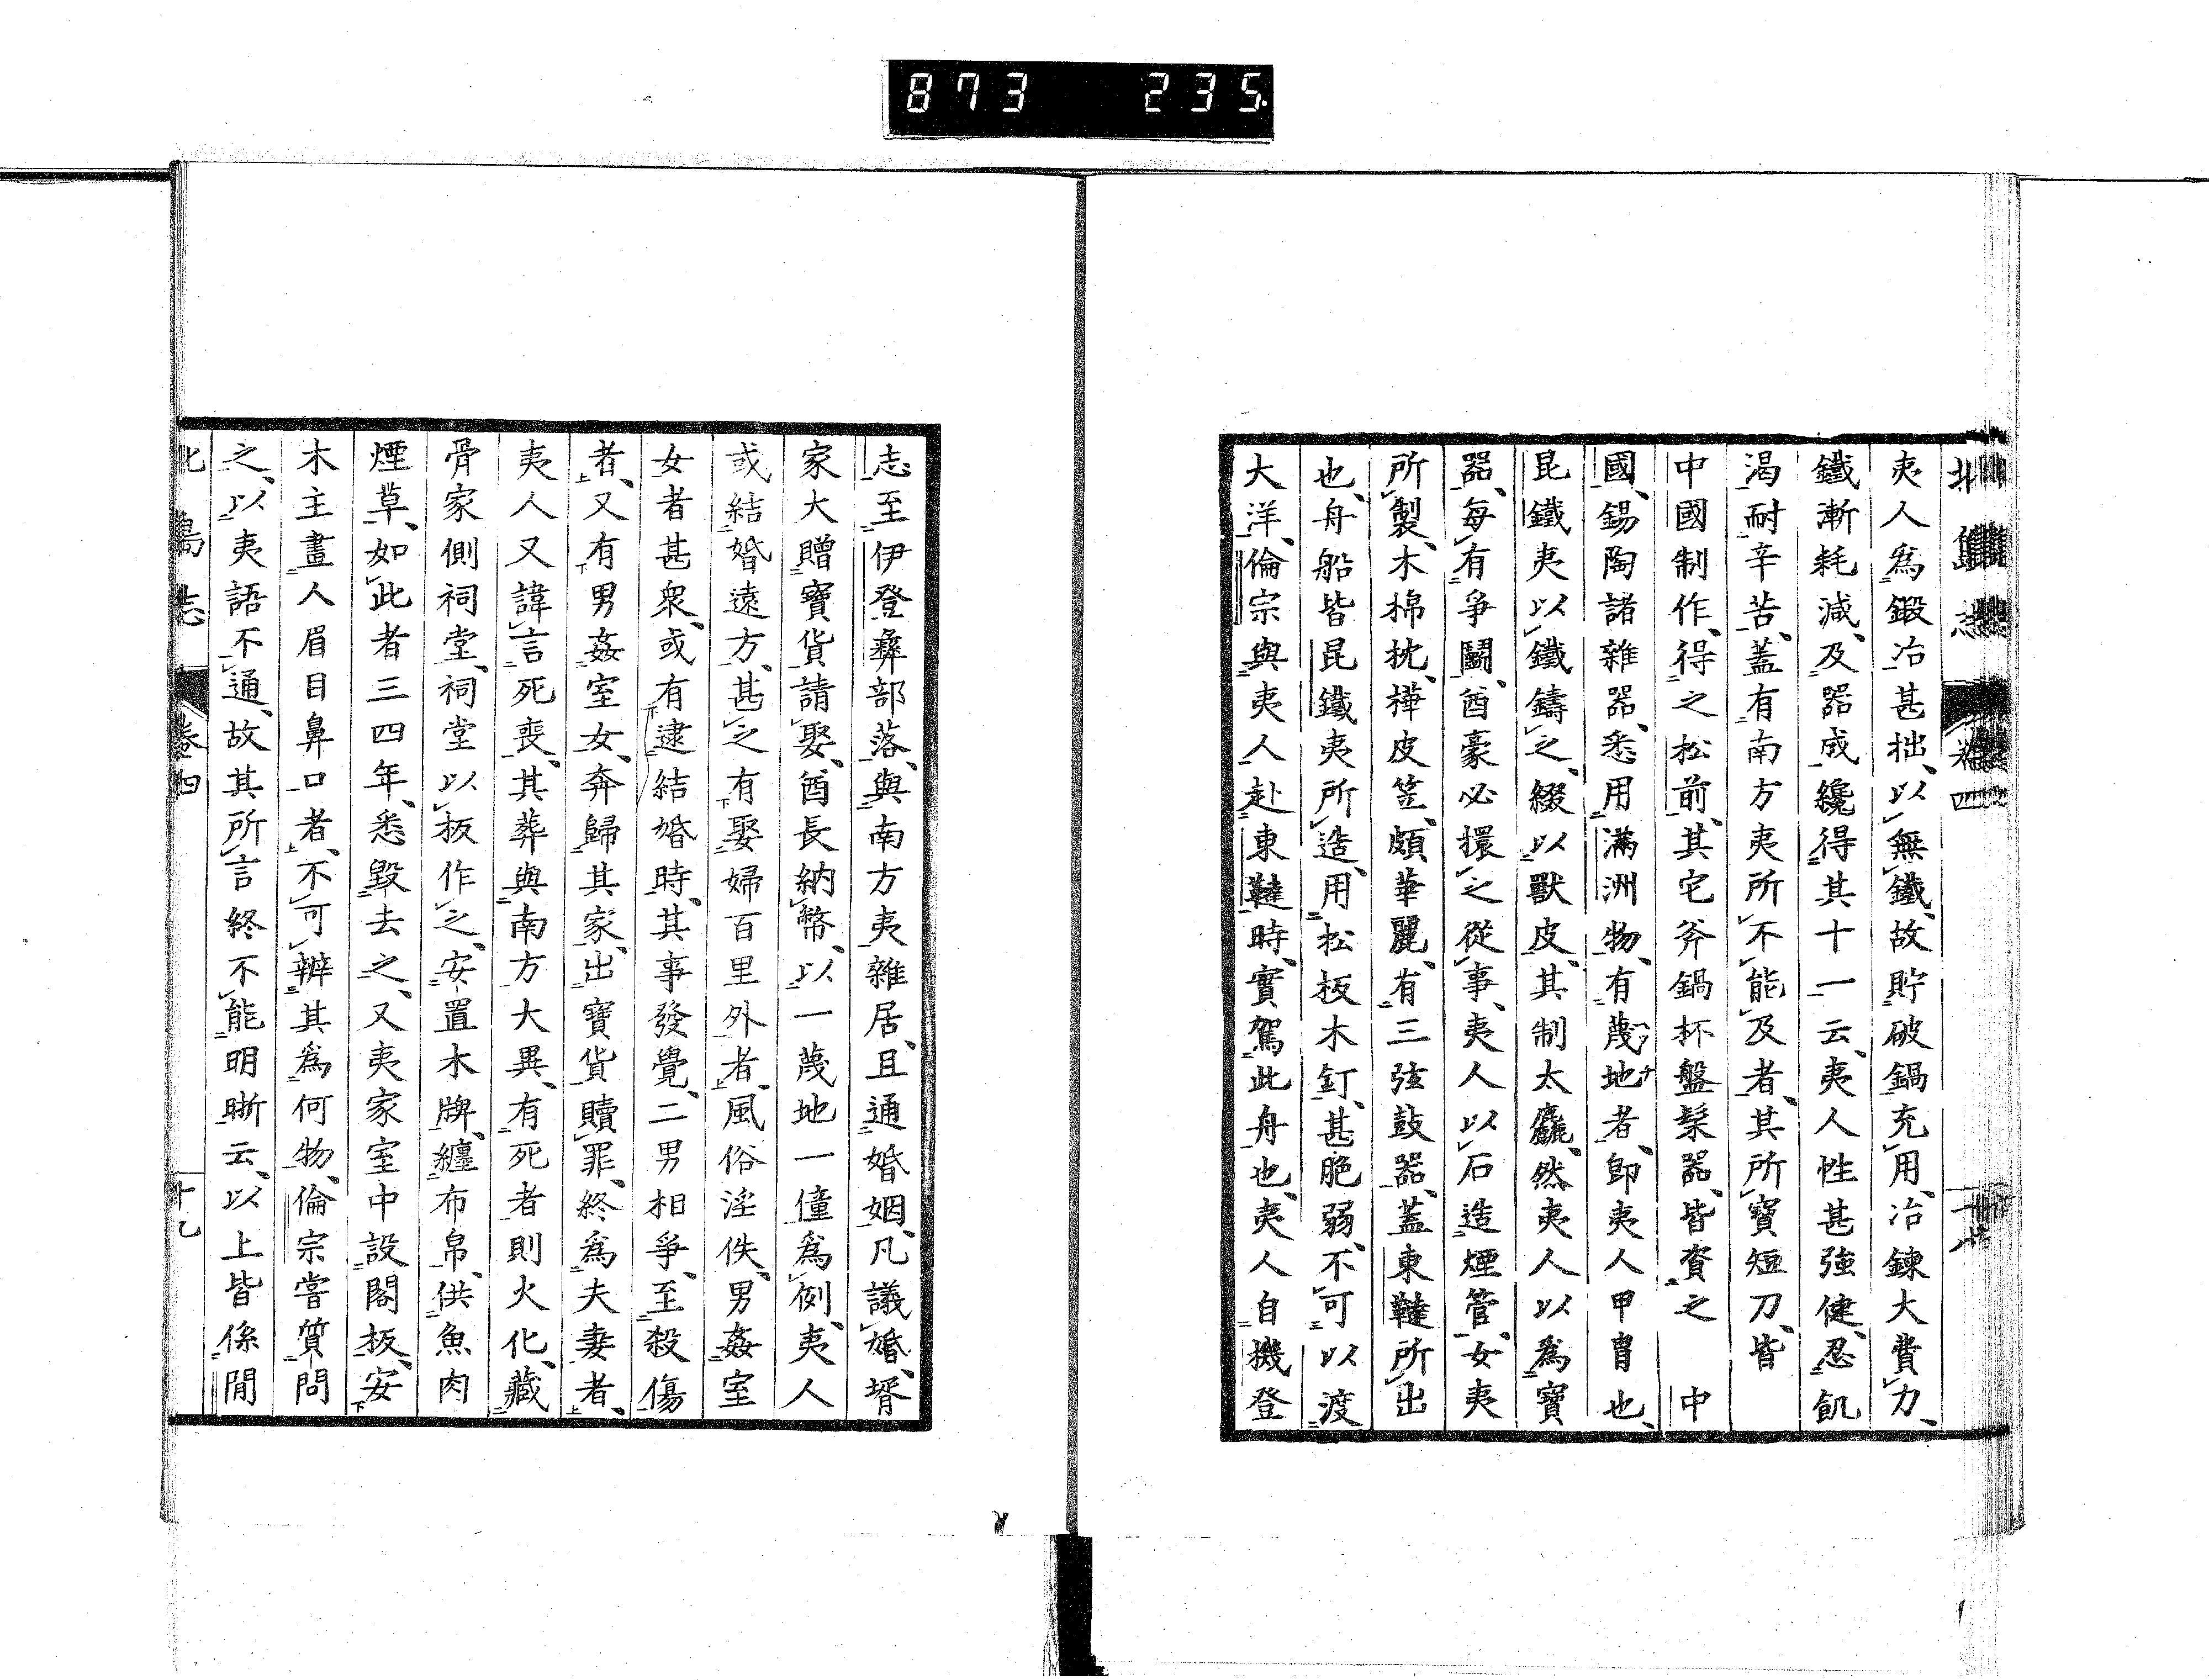 873 235
北島志 卷四
夷人爲鍛冶甚拙、以無鐵、故貯破鍋充用、冶鍊大費力、
鐵漸耗減、及器成纔得其十一云、夷人性甚強健、忍飢
渴耐辛苦、蓋有南方夷所不能及者、其所寶短刀、皆
中國制作、得之松前、其宅斧鍋杯盤髹器、皆資之 中
國、錫陶諸雜器、悉用滿洲物、有蔑地者、卽夷人甲冑也、
昆鐵夷以鐵鑄之、綴以獸皮、其制太麤、然夷人以爲寶
器、每有爭鬭、酋豪必擐之從事、夷人以石造煙管、女夷
所製、木棉枕、樺皮笠、頗華麗、有三弦鼓器、蓋東韃所出
也、舟船皆昆鐵夷所造、用松板木釘、甚脆弱、不可以渡
大洋、倫宗與夷人赴東韃時、實駕此舟也、夷人自機登
志至伊登彝部落、與南方夷雜居、且通婚姻、凡議婚、壻
家大贈寶貨請娶、酋長納幣、以一蔑地一僮爲例、夷人
或結婚遠方、甚之有娶婦百里外者、風俗淫佚、男姦室
女者甚衆、或有逮結婚時、其事發覺、二男相爭、至殺傷
者、又有男姦室女、奔歸其家、出寶貨贖罪、終爲夫妻者、
夷人又諱言死喪、其葬與南方大異、有死者則火化、藏
骨家側祠堂、祠堂以板作之、安置木牌、纏布帛、供魚肉
煙草、如此者三四年、悉毀去之、又夷家室中設閣板、安
木主畫人眉目鼻口者、不可辨其爲何物、倫宗嘗質問
之、以夷語不通、故其所言終不能明晰云、以上皆係閒
北島志 卷四 十九